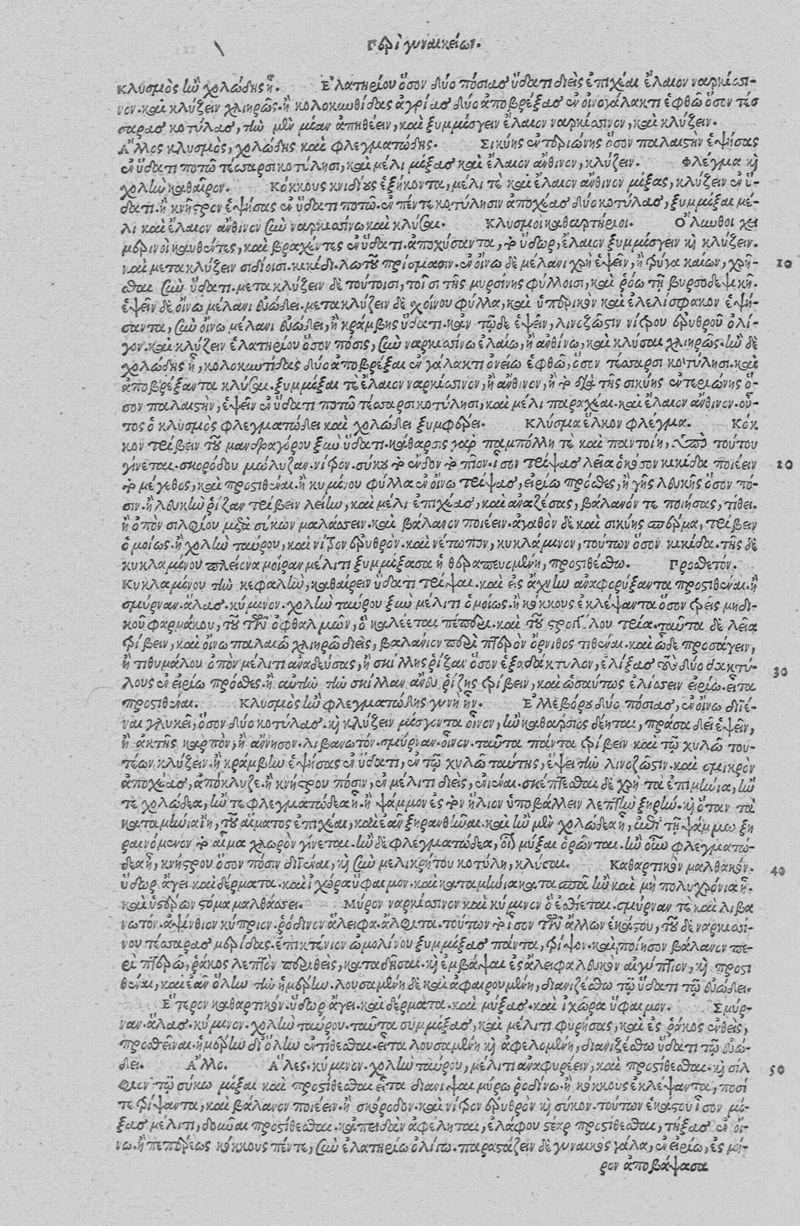 Περὶ γυναικείων.
κλυσμὸς ἢν χολώδης ᾖ. Ἐλατηρίου ὅσον δύο πόσιας ὕδατι διεὶς ἐπιχέαι ἔλαιον ναρκίσσι-
νον. καὶ κλύζειν χλιηρῶς. ἢ κολοκυνθίδας ἀγρίας δύο ἀποβρέξας ἐν οἰνογάλακτι ἑφθῷ ὅσον τέσ
σαρας κοτύλας, τὴν μὲν μίαν ἀπηθέειν, καὶ ξυμμίσγειν ἔλαιον ναρκίσσινον, καὶ κλύζειν.
Ἄλλος κλυσμὸς, χολώδης καὶ φλεγματώδης. Σικύης ἐντεριώνης ὅσον παλαιστὴν ἑψήσας
ἐν ὕδατι ποτῷ τέσσαρσι κοτύλησι, καὶ μέλι μίξας καὶ ἔλαιον ἄνθινον, κλύζειν. Φλέγμα καὶ
χολὴν καθαῖρον. Κόκκους κνιδίους ἑξήκοντα, μέλι τε καὶ ἔλαιον ἄνθινον μίξας, κλύζειν ἐν ὕ-
δατι. ἢ κνῆστρον ἑψήσας ἐν ὕδατι ποτῷ. ἐν πέντε κοτύλησιν ἀποχέας δύο κοτύλας, ξυμμίξαι μέ-
λι καὶ ἔλαιον ἄνθινον ξὺν ναρκισσίνῳ καὶ κλύσαι. Κλυσμοὶ καθαρτήριοι. Ὄλυνθοι χει
μερινοὶ καὶ βραχέντες ἐν ὕδατι. ἔλαιον ξυμμίσγειν καὶ κλύζειν.
καὶ μετακλύζειν σιδίοισι. κικίδι. λωτοῦ πρίσμασιν. ἐν οἴνῳ δὲ μέλανι χρὴ ἕψειν,
10
ξὺν ὕδατι. μετακλύζειν δὲ τούτοισι, τοῖσι τῆς μυρσίνης φύλλοισι, καὶ ῥόῳ τῇ βυρσοδεψικῇ.
ἕψειν δὲ οἴνῳ μέλανι εὐώδει. μετακλύζειν δὲ σχοίνου φύλλα, καὶ ὑπέρικον καὶ ἐλελίσφακον ἑψή-
σαντα, ξὺν οἴνῳ μέλανι εὐώδει, ἢ κράμβης ὕδατι. κἂν τῷδε ἕψειν, λινόζωστιν νίτρου ἐρυθροῦ ὀλί-
γον. καὶ κλύζειν ἐλατηρίου ὅσον πόσις, ξὺν ναρκισσίνῳ ἐλαίῳ, ἢ ἀνθίνῳ, καὶ κλύσαι χλιηρῶς. ἢν δὲ
χολώδης ᾖ, κολοκυντίδας δύο ἀποβρέξαι ἐν γάλακτι ὀνείῳ ἑφθῷ, ὅσον τέσσαρσι κοτύλησι. καὶ
ἀποβρέξαντα κλύσαι. ξυμμίξαι τε ἔλαιον ναρκίσσινον, ἢ ἄνθινον, ἢ τὸ διὰ τῆς σικύης ἐντεριώνης ὅ-
σον παλαιστὴν, ἕψειν ἐν ὕδατι ποτῷ τέσσαρσι κοτύλησι, καὶ μέλι παραχέαι. καὶ ἔλαιον ἄνθινον. οὗ-
τος ὁ κλυσμὸς φλεγματώδει καὶ χολώδει ξυμφέρει. Κλύσμα ἕλκον φλέγμα. Κόκ
κον τρίβειν τοῦ μανδραγόρου ξὺν ὕδατι. κάθαρσις γὰρ παμπόλλη τε καὶ παντοίη, ἀπὸ τούτου
γίνεται. σκορόδου μώλυζαν. νίτρον. σύκου τὸ ἔνδον τὸ πῖον. ἴσον τρίψας λεῖα ὁκόσον κικίδα ποιέειν
20
τὸ μέγεθος, καὶ προστιθέναι. ἢ κυμίνου φύλλα ἐν οἴνῳ τρίψας, εἰρίῳ πρόσθες, ἢ γῆς λευκῆς ὅσον πό-
σιν. ἢ λευκὴν ῥίζαν τρίβειν λείην, καὶ μέλι ἐπιχέας, καὶ ἀναζέσας, βάλανόν τε ποιήσας, τίθει.
ἢ ὀπὸν σιλφίου μετὰ σύκων μαλάσσειν. καὶ βάλανον ποιέειν. ἀγαθὸν δὲ καὶ σικύης σπέρμα, τρίβειν
ὁμοίως. ἢ χολὴν ταύρου, καὶ νίτρον ἐρυθρὸν. καὶ νέτωπον, κυκλάμινον, τούτων ὅσον κικίδα. τῆς δὲ
κυκλαμίνου πλείονα μοῖραν μέλιτι ξυμμίξασα ἡ θεραπευομένη, προστιθέσθω. Προσθετόν.
Κυκλαμίνου τὴν κεφαλὴν, καθαίρειν ὕδατι τρίψαι. καὶ ἐς ἄχνην ἀναφορύξαντα προστιθέναι. ἢ
σμύρναν. ἅλας. κύμινον. χολὴν ταύρου ξὺν μέλιτι ὁμοίως. ἢ κόκκους ἐκλέψαντα ὅσον τρεῖς μηδι-
κοῦ φαρμάκου, τοῦ τῶν ὀφθαλμῶν, ὃ καλέεται πέπερι. καὶ τοῦ στρογγύλου τρία. ταῦτα δὲ λεῖα
τρίβειν, καὶ οἴνῳ παλαιῷ χλιηρῷ διεὶς, βαλάνιον περὶ πτερὸν ὄρνιθος τιθέναι. καὶ ὧδε προσάγειν,
ἢ τιθυμάλου ὀπὸν μέλιτι ἀναδεύσας, ἢ σκίλλης ῥίζαν ὅσον ἑξαδάκτυλον, ἑλίξας τοὺς δύο δακτύ-
30
λους ἐν εἰρίῳ πρόσθες. ἢ αὐτὴν τὴν σκίλλαν ἄνευ ῥίζης τρίβειν, καὶ ὡσαύτως ἑλίσσειν εἰρίῳ. εἶτα
προστιθέναι. Κλυσμὸς ἢν φλεγματώδης γυνὴ ᾖν. Ἐλλεβόρου δύο πόσιας, ἐν οἴνῳ διιέ-
ναι γλυκεῖ, ὅσον δύο κοτύλας. καὶ κλύζειν μίσγοντα οἶνον, ἢν καθάρσιος δέηται, πράσα δεῖ ἕψειν,
ἢ ἀκτῆς καρπὸν, ἢ ἄννησον. λιβανωτόν. σμύρναν. οἶνον. ταῦτα πάντα τρίβειν καὶ τῷ χυλῷ του-
τέων κλύζειν. ἢ κράμβην ἑψήσας ἐν ὕδατι, ἐν τῷ χυλῷ ταύτης, ἕψει τὴν λινόζωστιν. καὶ σμικρὸν
ἀποχέας, ἀπόκλυζε. ἢ κνήστρου πόσιν, ἐν μέλιτι διεὶς, ἐνιέναι. σκέπτεσθαι δὲ χρὴ τὰ ἐπιμήνια, ἤν
τε χολώδεα, ἤν τε φλεγματώδεα ᾖ. ἢ ψάμμον ἐς τὸν ἥλιον ὑποβάλλειν λεπτὴν ξηρὴν. καὶ ὅταν τὰ
καταμήνια ἴῃ, τοῦ αἵματος ἐπιχέαι, καὶ ἐᾶν ξηρανθῆναι. καὶ ἢν μὲν χολώδεα ᾖ, ἐπὶ τῇ ψάμμῳ ξη
ραινόμενον τὸ αἷμα χλωρὸν γίνεται. ἢν δὲ φλεγματώδεα, οἷον μύξαι ὁρῶνται. ἢν οὖν φλεγματώ-
δεα ᾖ, κνήστρου ὅσον πόσιν διιέναι, καὶ ξὺν μελικρήτου κοτύλῃ, κλύσαι. Καθαρτικὸν μαλθακόν.
40
ὕδωρ ἄγει καὶ δέρματα. καὶ ἰχῶρα ὕφαιμον. καὶ καταμήνια κατασπᾷ ἢν καὶ μὴ πολυχρόνια ᾖ.
καὶ ὑστερῶν στόμα μαλθάσσει. Μύρον ναρκίσσινον καὶ κύμινον ὃ ἐσθίεται. σμύρναν τε καὶ λιβα
νωτόν. ἀψίνθιον κύπριον. ῥόδινον ἄλειφα. ἄλφιτα. τούτων τὸ ἴσον τῶν ἄλλων ἑκάστου, τοῦ δὲ ναρκισσί-
νου τέσσαρας μερίδας. ἐπικτένιον ὠμολίνου ξυμμίξας πάντα, τρίψον. καὶ ποίησον βάλανον πε-
ρὶ πτερῷ, ῥάκος λεπτὸν περιθεὶς, καταδῆσαι. καὶ ἐμβάψαι ἐς ἄλειφα λευκὸν αἰγύπτιον, καὶ προστι
θέναι, καὶ ἐᾶν ὅλην τὴν ἡμέρην. λουσαμένη δὲ καὶ ἀφαιρουμένη, διανιζέσθω τῷ ὕδατι τῷ εὐώδει.
Ἕτερον καθαρτικόν. ὕδωρ ἄγει. καὶ δέρματα. καὶ μύξας. καὶ ἰχῶρα ὕφαιμον. Σμύρ-
ναν. ἅλας. κύμινον. χολὴν ταύρου. ταῦτα συμμίξας, καὶ μέλιτι φυρήσας, καὶ ἐς ῥάκος ἐνθεὶς,
προσθεῖναι. ἡμέρην δι' ὅλην ἐντιθέσθαι. εἶτα λουσαμένην καὶ ἀφελομένην, διανιζέσθω ὕδατι τῷ εὐώ-
δει. Ἄλλο. Ἅλες. κύμινον. χολὴν ταύρου, μέλιτι ἀναφυρέειν, καὶ προστιθέσθαι. καὶ σίλ
50
φιον τῷ σύκῳ μίξαι καὶ προστιθέσθαι. εἶτα διανίψαι μύρῳ ῥοδίνῳ. ἢ κόκκους ἐκλέψαντα, ποσί
τε τρίψαντα, καὶ βάλανον ποιέειν. ἢ σκόροδον. καὶ νίτρον ἐρυθρὸν καὶ σῦκον. τούτων ἑκάστου ἴσον μί-
ξας μέλιτι, δοῦναι προστίθεσθαι. κἀπειδὰν ἀφέληται, ἐλάφου στέαρ προστίθεσθαι, τήξας ἐν οἴ-
νῳ. ἢ πεπέρεως κόκκους πέντε, ξὺν ἐλατηρίῳ ὀλίγῳ. παραστάζειν δὲ γυναικὸς γάλα, ἐν εἰρίῳ, ἐς μύ-
ρον ἀποβάψασα